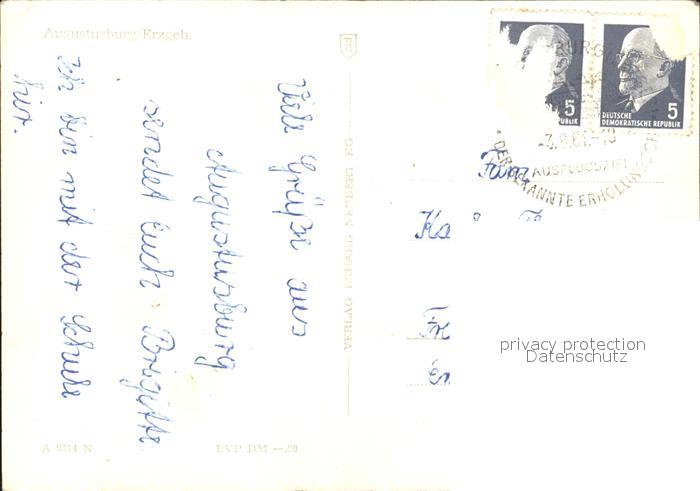 Augustusburg/Erzgeb.
Viele Grüße aus
Augustusburg
sendet Euch Brigitte.
Ich bin mit der Schule
hier.
A 9214 N
EVP DM —.20
VERLAG ERHARD NEUBERT KG
5
DEUTSCHE
DEMOKRATISCHE REPUBLIK
5
BURG
-3.8.61.-18
AUSFLUGSZIEL
DER BEKANNTE ERHOLUNGS
Fam.
Ka
Fr
Er
privacy protection
Datenschutz